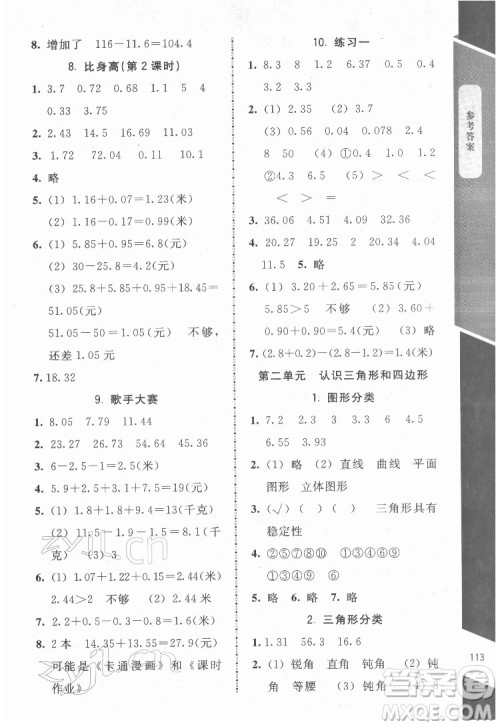 8. 增加了 116－11.6＝104.4
8. 比身高(第 2 课时)
1. 3.7 7.73 0.52 0.48 4
0.33 3.75
2. 2.43 14.5 16.69 10.29
3. 1.72 2.82 18.22
4. 略
5. (1) 1.16＋0.07＝1.23(米)
(2) 1.16＋0.03＝1.19(米)
6. (1) 5.85＋0.4＝6.25(元)
(2) 30－25.8＝4.2(元)
(3) 25.8＋5.85＋0.4＋19＝
51.05(元)
51.05－50＝1.05(元) 不够，
还差 1.05 元
7. 18.32
9. 歌手大赛
1. 8.05 7.79 11.44
2. 23.27 23.27 26.36 26.36
3. 6－2－1.5＝2.5(米)
4. 5.9＋2.5＋3.6＝12(千克)
5. (1) 10－2.9＝7.1(千克)
(2) 9.2－(10－2.9)＝2.1(千
克) (3)3
6. (1) 1.07＋1.22＋0.15＝
2.44(米)
2.44＞2 (2) 不够
8. 2 本 14.35＋13.2＝27.55(元)
可能是《卡通漫画》和《课时
作业》
10. 练习一
1. 8 1.2 8.7 0.38 0.5 3.2
6.37 0.5 3.4
2. (1) 0.32 (2) 1.45 (3) 7.9
(4) 0.3
3. (1) 0.13 0.04 0.078 0.078
8 50 (2) 4 (3)①0.49
②4.29 (4)①＞ ＞ ＜
＜ ＞ ＝
3. 36.06 4.51 4.09 32.36
4. 20.27 20.27 11.34 11.34
11.5 5. 略
6. (1) 3.20＋2.65＝5.85(元)
5.85＞5 不够 (2) 3.60＋
2.40＋0.90＝6.90(元)
7. 2.8－(0.8＋0.8－0.2)＝1.4(米)
第二单元 认识三角形和四边形
1. 图形分类
1. 7.2 3 6.6 5.23
2. (1) 略 (2) 直线 曲线 平面
图形 立体图形
3. (√) ( ) (√) 三角形具有
稳定性
4. ②⑤⑦⑧⑩ ①③④⑥⑨
①③④⑧⑨ ②⑤⑥⑦⑩
5. 略 6. 略 7. 略
2. 三角形分类
1. 1.31 56.3 16.6
2. (1) 锐角 直角 钝角 (2) 钝
角 等腰 (3) 锐角 钝角
参考答案
113